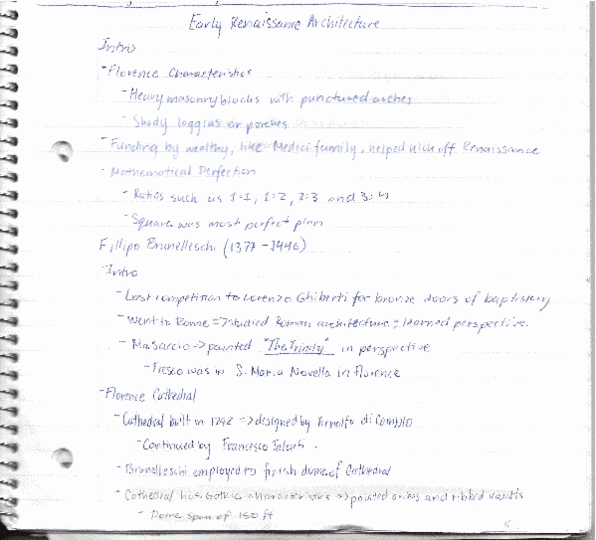 Early Renaissance Architecture
Intro
- Florence Characteristics
- Heavy masonry blocks with punctured arches
- Shady loggias or porches
- Funding by wealthy, like Medici family, helped kick off Renaissance
- Mathematical Perfection
- Ratios such as 1:1, 1:2, 2:3 and 3:4
- Square was most perfect plan
Fillipo Brunelleschi (1377-1446)
- Intro
- Lost competition to Lorenzo Ghiberti for bronze doors of baptistery
- Went to Rome => studied Roman architecture; learned perspective.
- Masaccio -> painted "The Trinity" in perspective
- Fresco was in S. Maria Novella in Florence
- Florence Cathedral
- Cathedral built in 1292 => designed by Arnolfo di Cambio
- Continued by Francesco Talenti.
- Brunelleschi employed to finish dome of Cathedral
- Cathedral has Gothic => pointed arches and ribbed vaults
- Dome span of 150 ft